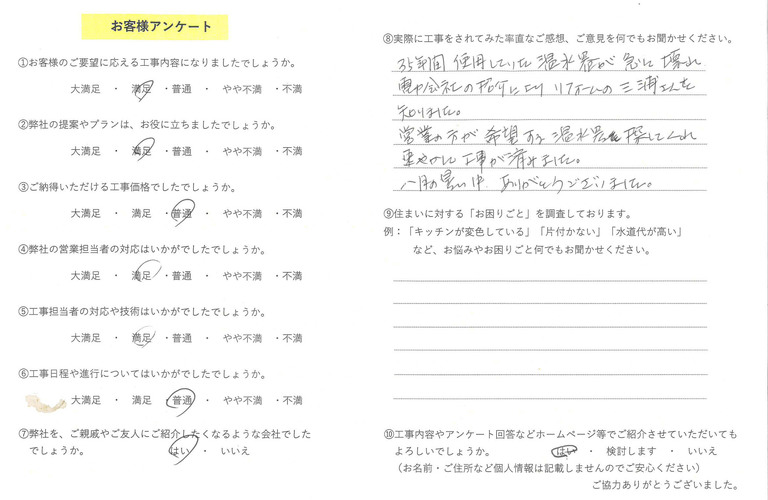 お客様アンケート
①お客様のご要望に応える工事内容になりましたでしょうか。
大満足 ・ 満足 ・普通 ・ やや不満 ・不満
②弊社の提案やプランは、お役に立ちましたでしょうか。
大満足 ・ 満足 ・普通 ・ やや不満 ・不満
③ご納得いただける工事価格でしたでしょうか。
大満足 ・ 満足 ・ 普通 ・ やや不満 ・ 不満
④弊社の営業担当者の対応はいかがでしたでしょうか。
大満足 ・ 満足 ・普通 ・ やや不満 ・ 不満
⑤工事担当者の対応や技術はいかがでしたでしょうか。
大満足 ・ 満足 ・普通 ・ やや不満 ・不満
⑥工事日程や進行についてはいかがでしたでしょうか。
大満足 ・ 満足 ・普通 ・ やや不満 ・不満
⑦弊社を、ご親戚やご友人にご紹介したくなるような会社でした
でしょうか。 はい ・ いいえ
⑧実際に工事をされてみた率直なご感想、ご意見を何でもお聞かせください。
35年間使用していた温水器が急に壊れ
電力会社の紹介によりリフォームの三浦さんを
知りました。
営業の方が希望する温水器を探してくれ
速やかに工事が済みました。
八月の暑い中、ありがとうございました。
⑨住まいに対する「お困りごと」を調査しております。
例：「キッチンが変色している」「片付かない」「水道代が高い」
など、お悩みやお困りごと何でもお聞かせください。
⑩工事内容やアンケート回答などホームページ等でご紹介させていただいても
よろしいでしょうか。 はい ・ 検討します ・ いいえ
（お名前・ご住所など個人情報は記載しませんのでご安心ください）
ご協力ありがとうございました。